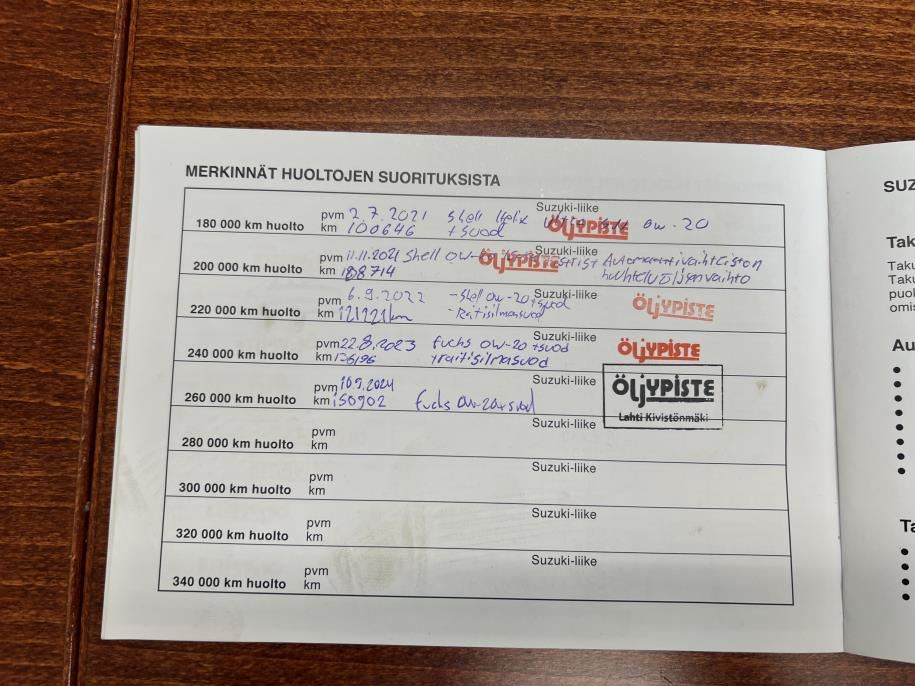 MERKINNÄT HUOLTOJEN SUORITUKSISTA
180 000 km huolto pvm 2.7.2021 Shell Helix Suzuki-liike 0w-20
km 100646 + suod ÖLJYPISTE
200 000 km huolto pvm 11.11.2021 Shell 0W- Suzuki-liike Automaattivaihteiston
km ÖLJYPISTE huuhtelu öljynvaihto
220 000 km huolto pvm 6.9.2022 - Shell 0w-20 + suod Suzuki-liike
km 121221 km - Ratisilmasuod ÖLJYPISTE
240 000 km huolto pvm 22.8.2023 fuchs 0W-20 + suod Suzuki-liike
km + raitisilmasuod ÖLJYPISTE
260 000 km huolto pvm 10.9.2024 Suzuki-liike
km 150902 fuchs 0w-20 + suod ÖLJYPISTE
Lahti Kivistönmäki
280 000 km huolto pvm Suzuki-liike
km
300 000 km huolto pvm Suzuki-liike
km
320 000 km huolto pvm Suzuki-liike
km
340 000 km huolto pvm Suzuki-liike
km
SUZ
Tak
Taku
Taku
puol
omis
Au
Ta